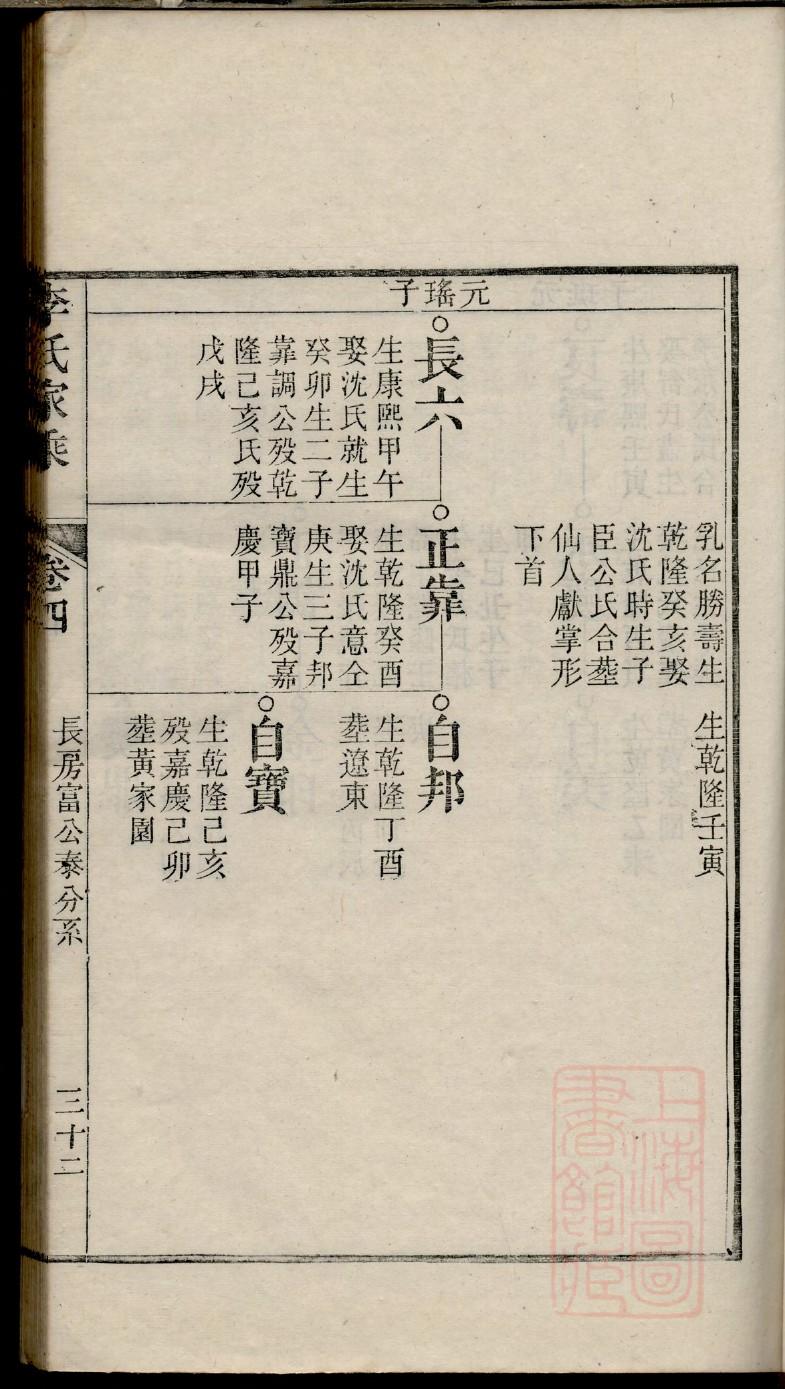 元瑤子
乳名勝壽生
乾隆癸亥娶
沈氏時生子
臣公氏合塟
仙人獻掌形
下首
生乾隆壬寅
長六
生康熙甲午
娶沈氏就生
癸卯生二子
靠調公殁乾
隆己亥氏殁
戊戌
正靠
生乾隆癸酉
娶沈氏意仝
庚生三子邦
寶鼎公殁嘉
慶甲子
自邦
生乾隆丁酉
塟遼東
自寶
生乾隆己亥
殁嘉慶己卯
塟黃家園
李氏家乘
卷四
長房富公泰分系
三十二
上海圖
書館藏